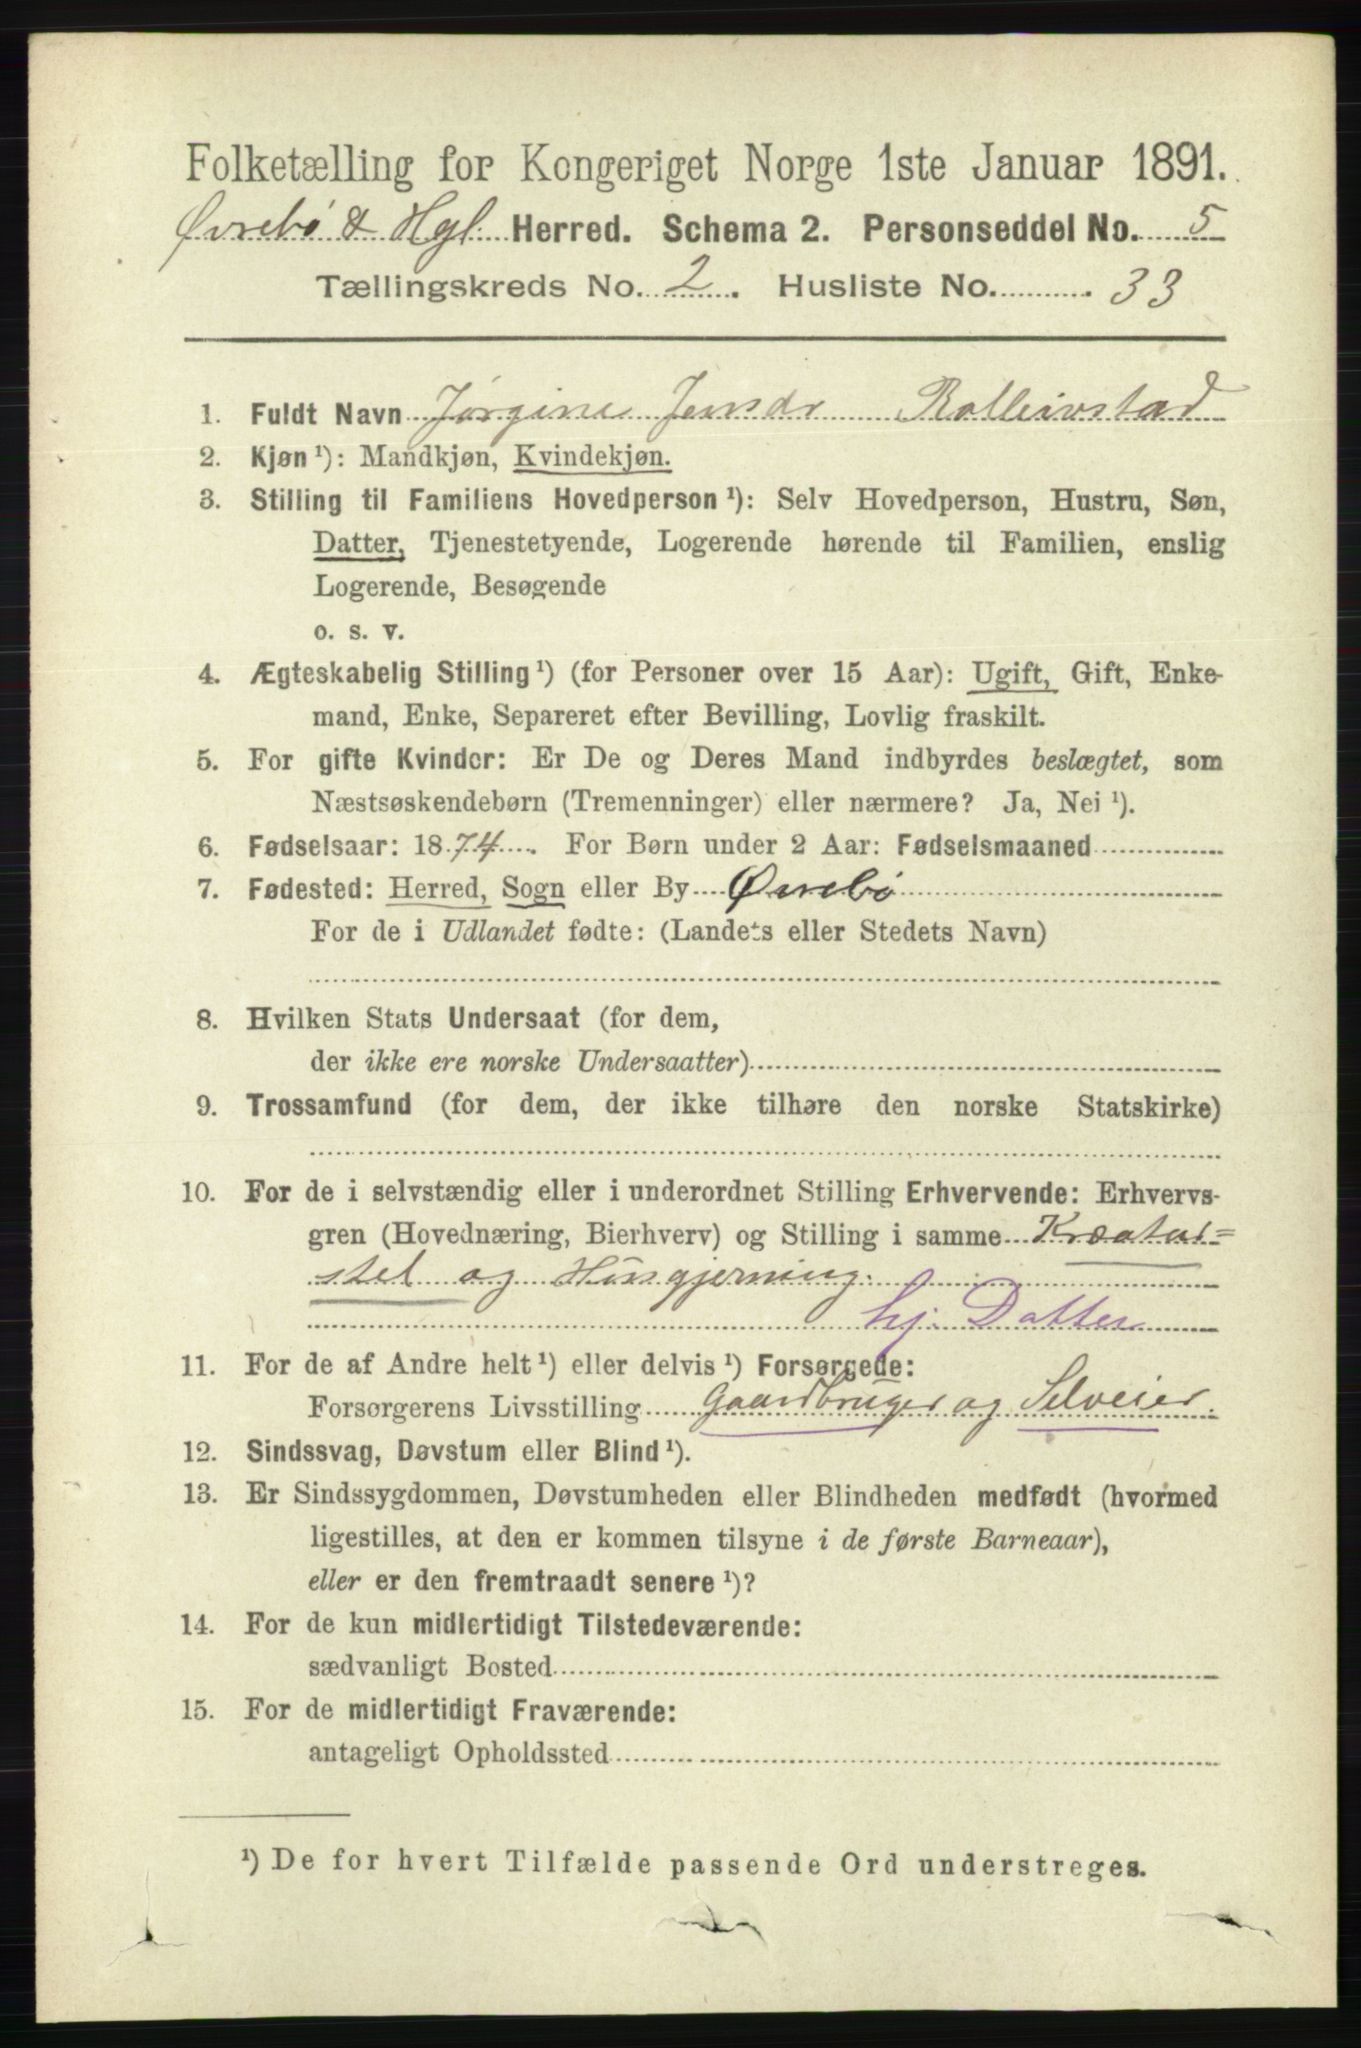 Folketælling for Kongeriget Norge 1ste Januar 1891.
Øvrebø & Hgl. Herred. Schema 2. Personseddel No. 5
Tællingskreds No. 2. Husliste No. 33
1. Fuldt Navn Jørgine Jensdr Rolleivstad
2. Kjøn ¹): Mandkjøn, Kvindekjøn.
3. Stilling til Familiens Hovedperson ¹): Selv Hovedperson, Hustru, Søn,
Datter, Tjenestetyende, Logerende hørende til Familien, enslig
Logerende, Besøgende
o. s. v.
4. Ægteskabelig Stilling ¹) (for Personer over 15 Aar): Ugift, Gift, Enke-
mand, Enke, Separeret efter Bevilling, Lovlig fraskilt.
5. For gifte Kvinder: Er De og Deres Mand indbyrdes beslægtet, som
Næstsøskendebørn (Tremenninger) eller nærmere? Ja, Nei ¹).
6. Fødselsaar: 1874. For Børn under 2 Aar: Fødselsmaaned
7. Fødested: Herred, Sogn eller By Øvrebø
For de i Udlandet fødte: (Landets eller Stedets Navn)
8. Hvilken Stats Undersaat (for dem,
der ikke ere norske Undersaatter)
9. Trossamfund (for dem, der ikke tilhøre den norske Statskirke)
10. For de i selvstændig eller i underordnet Stilling Erhvervende: Erhvervs-
gren (Hovednæring, Bierhverv) og Stilling i samme Kreatur=
stel og Husgjerning.
hj. Datter
11. For de af Andre helt ¹) eller delvis ¹) Forsørgede:
Forsørgerens Livsstilling Gaardbruger og Selveier.
12. Sindssvag, Døvstum eller Blind ¹).
13. Er Sindssygdommen, Døvstumheden eller Blindheden medfødt (hvormed
ligestilles, at den er kommen tilsyne i de første Barneaar),
eller er den fremtraadt senere ¹)?
14. For de kun midlertidigt Tilstedeværende:
sædvanligt Bosted
15. For de midlertidigt Fraværende:
antageligt Opholdssted
¹) De for hvert Tilfælde passende Ord understreges.